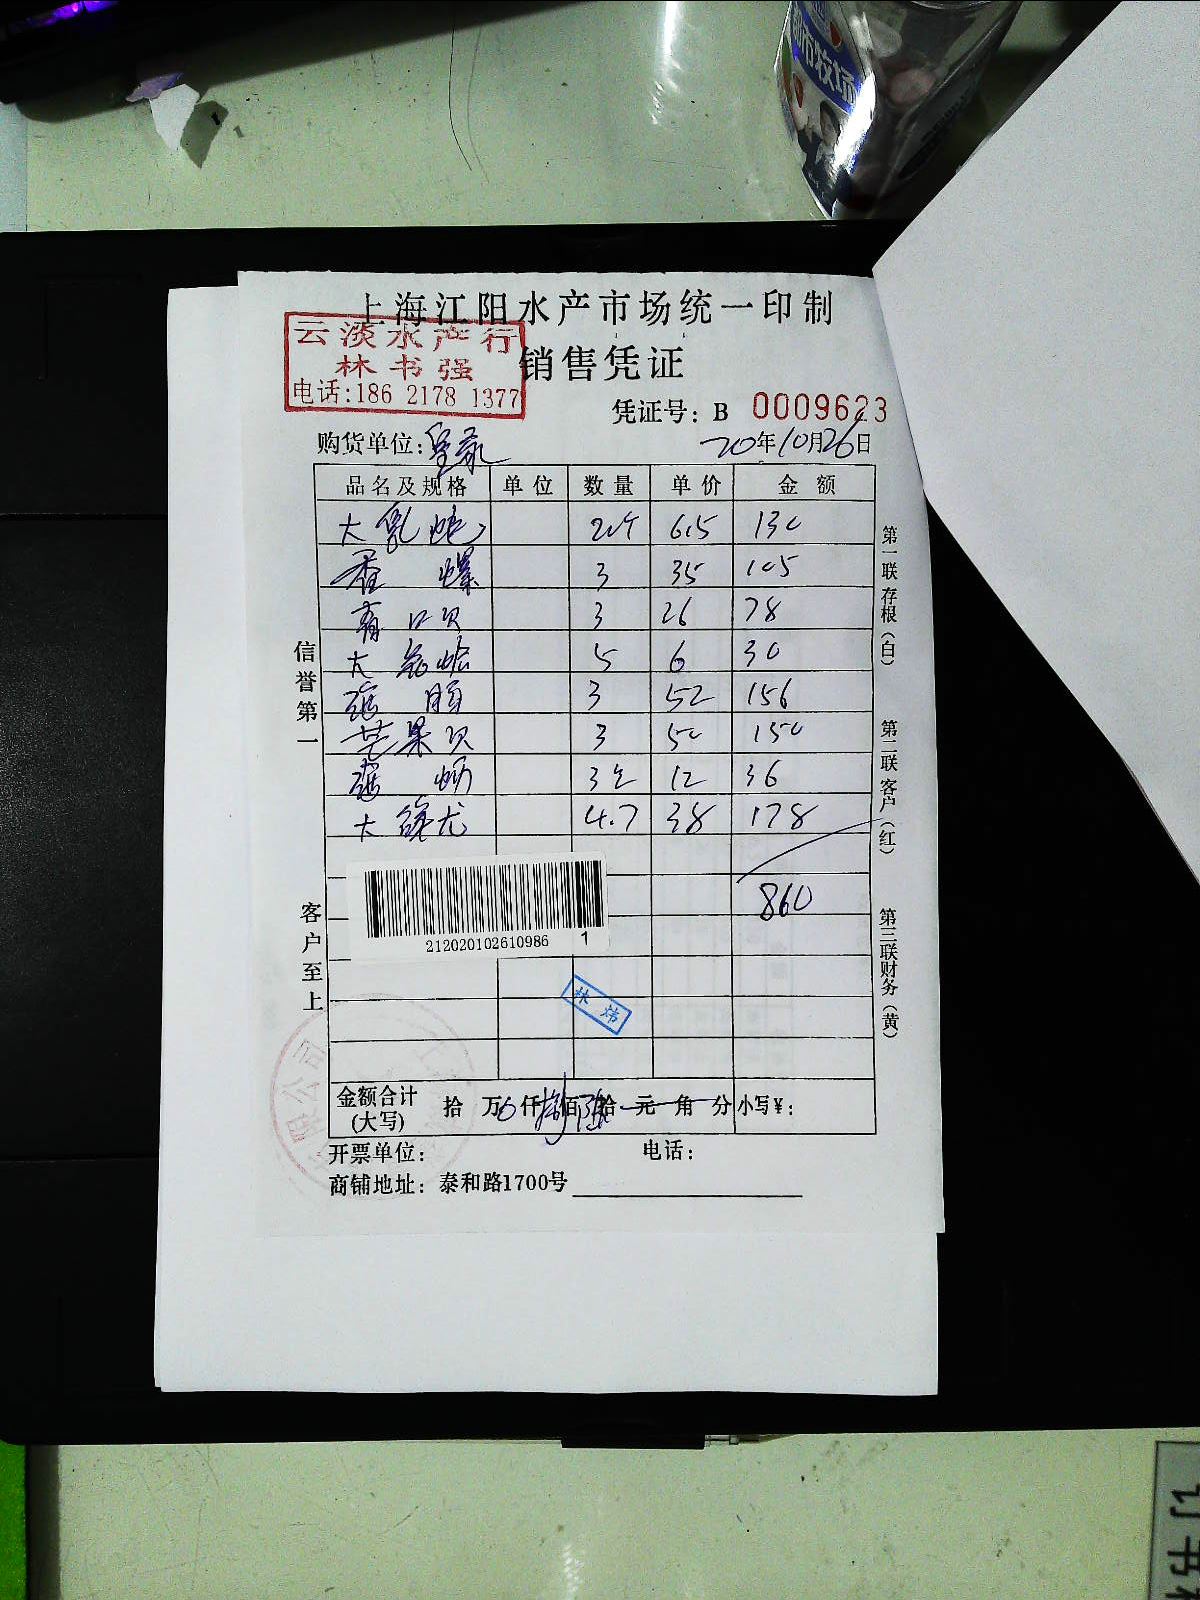 都市牧场
上海江阳水产市场统一印制
云淡水产行
林书强
电话:186 2178 1377
销售凭证
凭证号: B 0009623
购货单位:
20年10月26日
品名及规格 单位 数量 单价 金额
大 6.5 130
香螺 3 35 105
3 26 78
大 5 6 30
3 52 156
苹果贝 3 50 150
12 36
大 龙 4.7 38 178
860
212020102610986 1
林炜
金额合计(大写) 拾 万 仟 佰 拾 元 角 分 小写¥:
开票单位: 电话:
商铺地址: 泰和路1700号
信誉第一
客户至上
第一联存根(白)
第二联客户(红)
第三联财务(黄)
限公司
订书